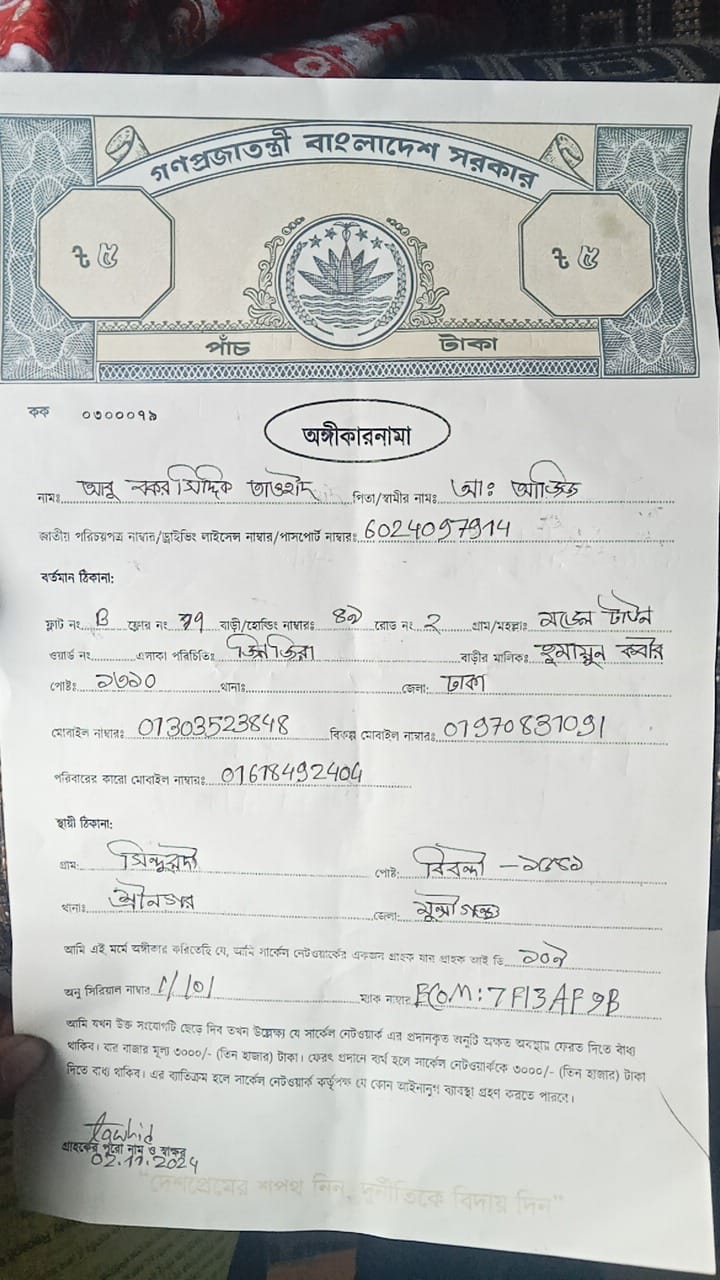 গণপ্রজাতন্ত্রী বাংলাদেশ সরকার
৳ ৫ ৳ ৫
পাঁচ টাকা
কক ০৩০০০৭৯
অঙ্গীকারনামা
নামঃ আবু বকর সিদ্দিক তাওহীদ পিতা/স্বামীর নামঃ আঃ আজিজ
জাতীয় পরিচয়পত্র নাম্বার/ড্রাইভিং লাইসেন্স নাম্বার/পাসপোর্ট নাম্বারঃ 6024097914
বর্তমান ঠিকানা:
ফ্লাট নং B ফ্লোর নং বাড়ী/হোল্ডিং নাম্বারঃ ৪৯ রোড নং ২ গ্রাম/মহল্লাঃ মডেল টাউন
ওয়ার্ড নং এলাকা পরিচিতিঃ জিনজিরা বাড়ীর মালিকঃ হুমায়ুন কবীর
পোষ্টঃ ১৩১০ থানাঃ জেলা: ঢাকা
মোবাইল নাম্বারঃ 01303523848 বিকল্প মোবাইল নাম্বারঃ 01970831091
পরিবারের কারো মোবাইল নাম্বারঃ 01678492404
স্থায়ী ঠিকানা:
গ্রাম: সিন্দুরদী পোষ্ট:
থানাঃ শ্রীনগর জেলা: মুন্সীগঞ্জ
আমি এই মর্মে অঙ্গীকার করিতেছি যে, আমি সার্কেল নেটওয়ার্কের একজন গ্রাহক যার গ্রাহক আই ডি ১০৯
অনু সিরিয়াল নাম্বার 1/101 ম্যাক নাম্বার ECOM:7F13AF9B
আমি যখন উক্ত সংযোগটি ছেড়ে দিব তখন উল্লেখ্য যে সার্কেল নেটওয়ার্ক এর প্রদানকৃত অনুটি অক্ষত অবস্থায় ফেরত দিতে বাধ্য
থাকিব। যার বাজার মূল্য ৩০০০/- (তিন হাজার) টাকা। ফেরৎ প্রদানে ব্যর্থ হলে সার্কেল নেটওয়ার্ককে ৩০০০/- (তিন হাজার) টাকা
দিতে বাধ্য থাকিব। এর ব্যতিক্রম হলে সার্কেল নেটওয়ার্ক কর্তৃপক্ষ যে কোন আইনানুগ ব্যবস্থা গ্রহণ করতে পারবে।
Tawhid
গ্রাহকের পুরো নাম ও স্বাক্ষর
02.11.2024
"দেশপ্রেমের শপথ নিন, দুর্নীতিকে বিদায় দিন"